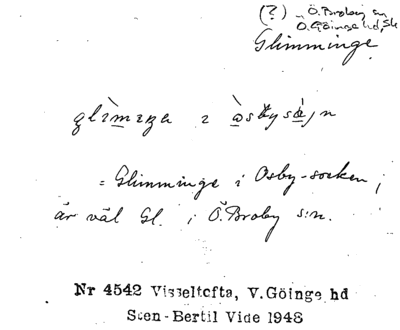 (?) Ö. Broby sn
Ö. Göinge hd, Sk
Glimminge
i
= Glimminge i Osby-socken;
är väl Gl. i Ö. Broby s:n.
Nr 4542 Visseltofta, V.Göinge hd
Sven-Bertil Vide 1948